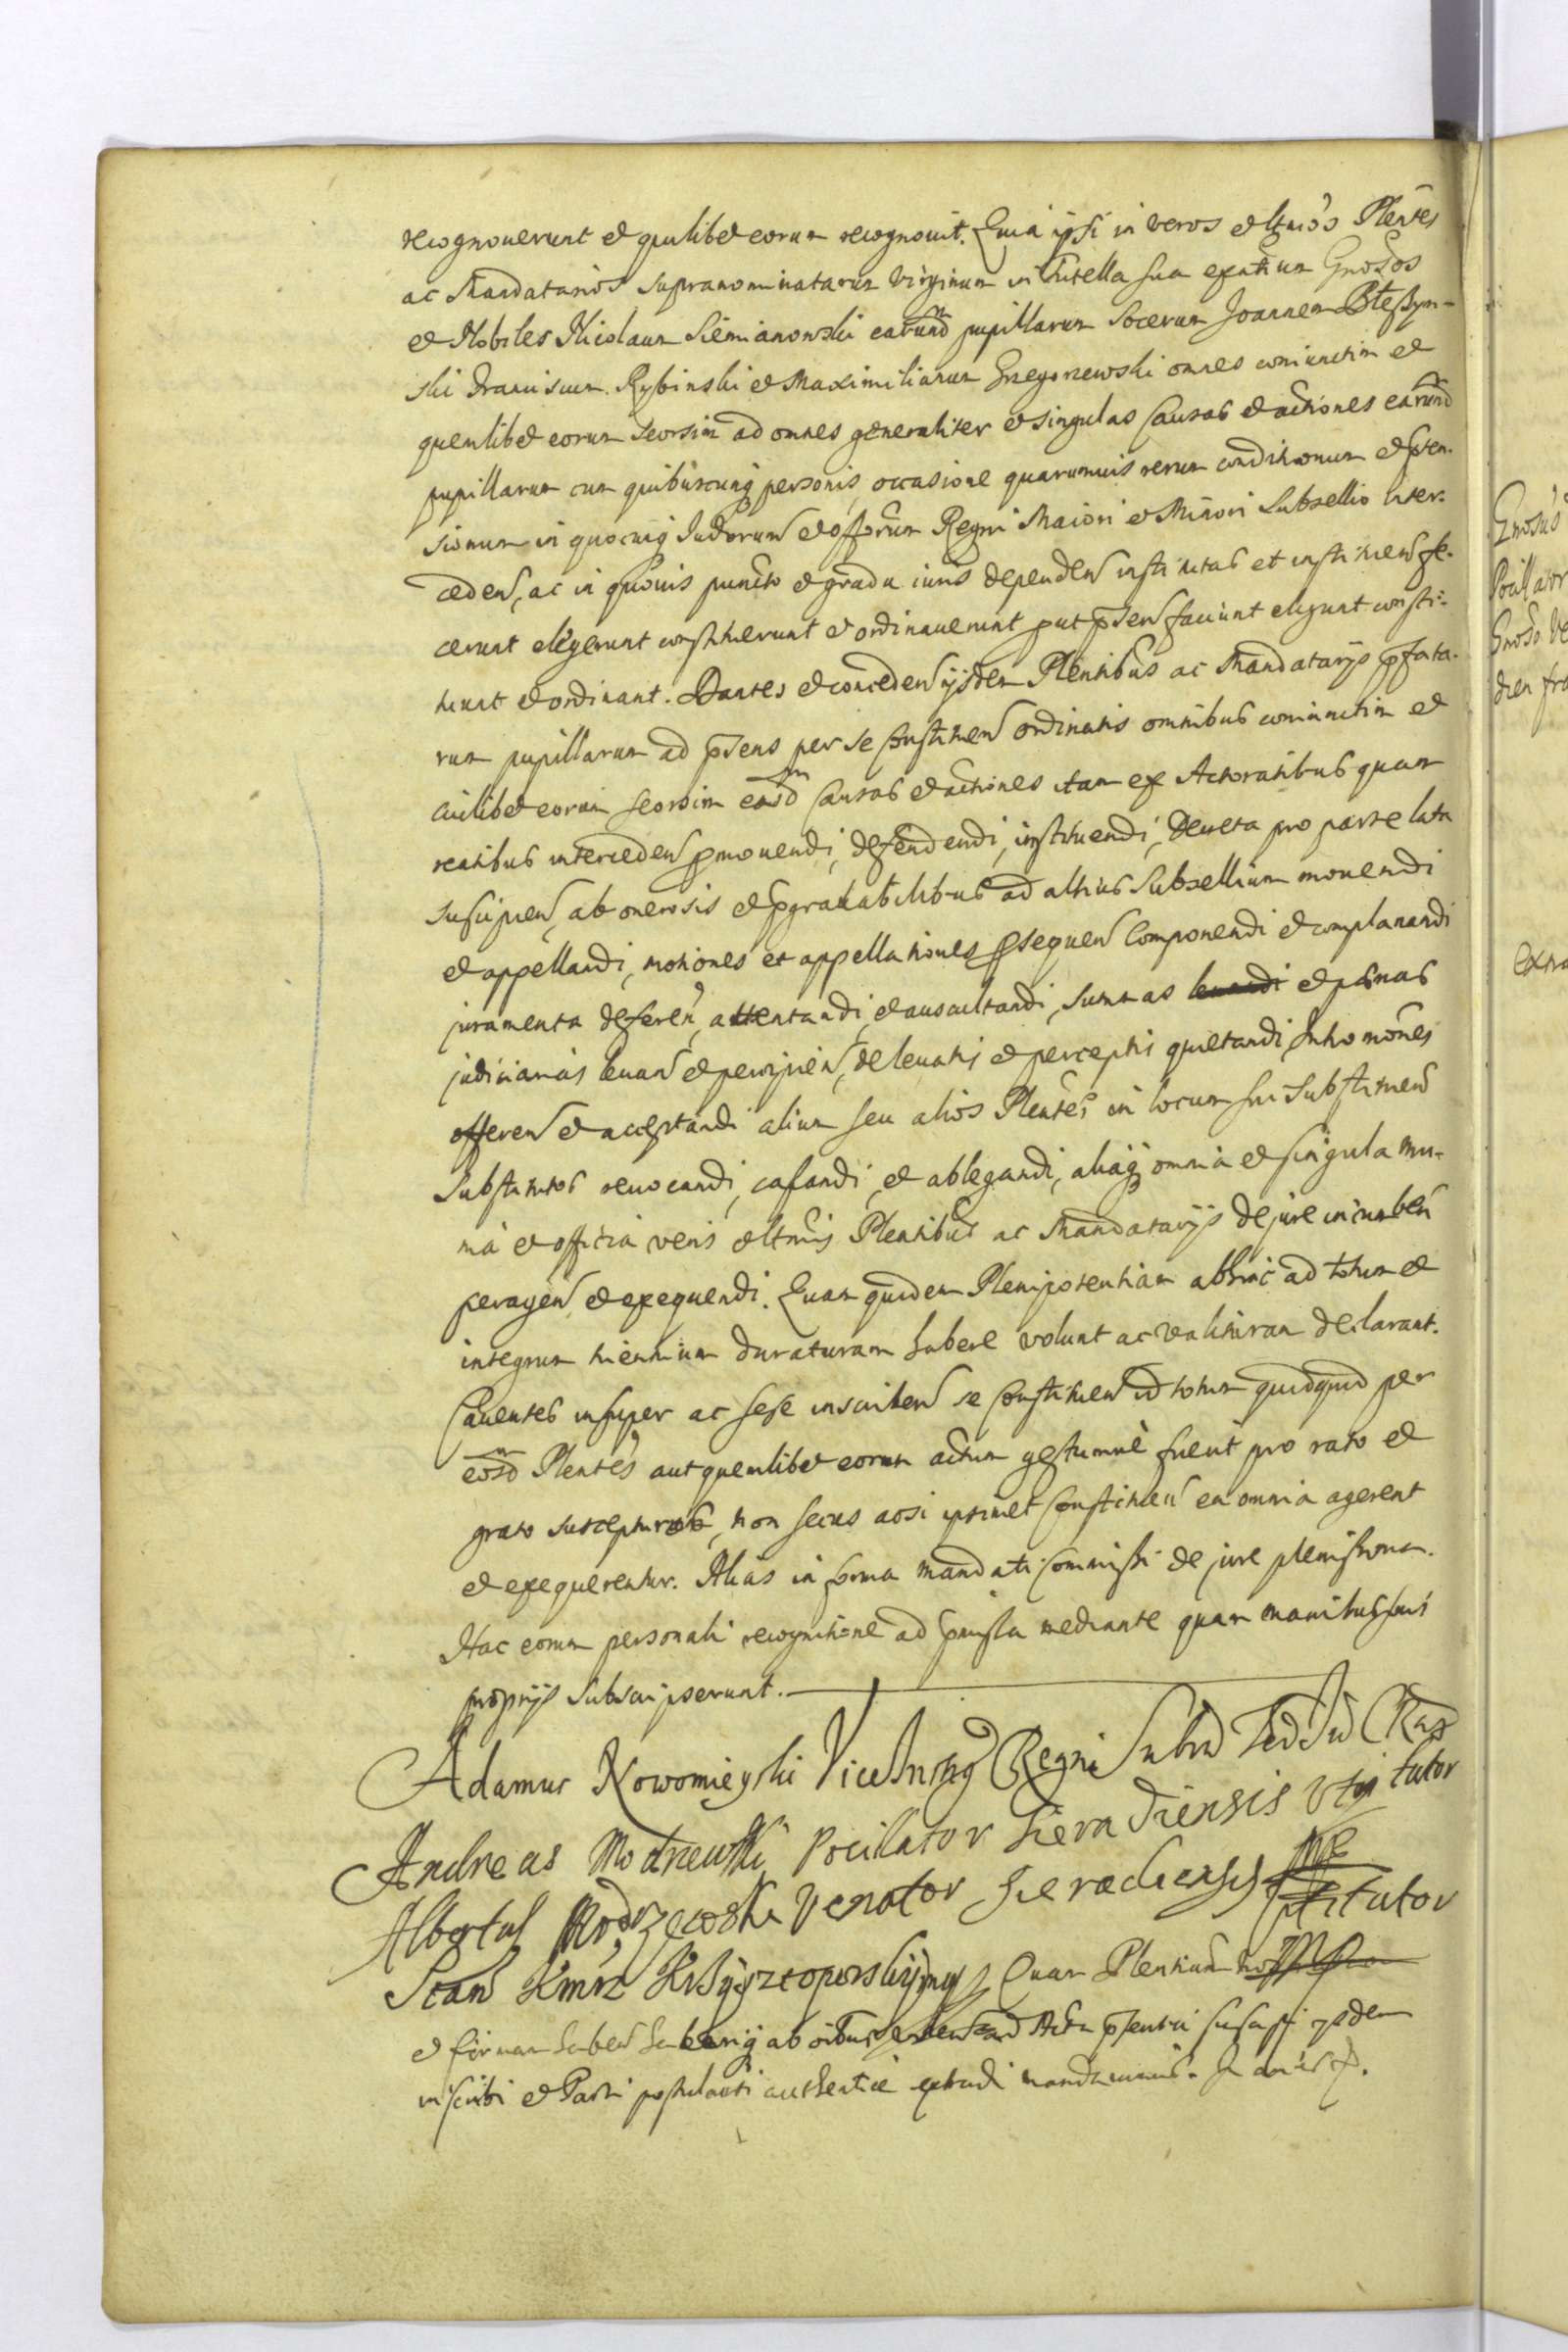 recognouerunt et quilibet eorum recognouit. Quia ipsi in veros et ltmos Plentes
ac Mandatarios supranominatarum Virginum in Tutella sua exntium Gnosos
et Nobiles Nicolaum Siemianowski earund pupillarum Socerum Joannem Bleszyn-
ski Franciscum Rybinski et Maximilianum Gregorzewski omnes coniunctim et
quemlibet eorum seorsim ad omnes generaliter et singulas Causas et actiones earund
pupillarum cum quibuscunq personis occasione quarumuis rerum conditionum et preten-
sionum in quocunq Judiorum et offorum Regni Maiori et Minori Subsellio inter-
ceden, ac in quouis puncto et gradu iuris dependen institutas et instituen fe-
cerunt elegerunt constituerunt et ordinauerunt put psen faciunt eligunt consti-
tuunt et ordinant. Dantes et conceden ijsdem Plentibus ac Mandatarijs pfata-
rum pupillarum ad psens per se Constituen ordinatis omnibus coniunctim et
cuilibet eorum seorsim easd Causas et actiones tam ex Actoratibus quam
reatibus interceden pmouendi, defendendi, instituendi, Decreta pro parte lata
suscipien, ab onerosis et pgrauabilibus ad altius Subsellium mouendi
et appellandi, motiones et appellationes psequen Componendi et complanandi
juramenta deferen, attentandi, et auscultandi, Summas leuandi et pænas
judiciarias leuan et percipien, de leuatis et perceptis quietandi, Intromones
offeren et acceptandi alium seu alios Plentes in locum sui Substituen
Substitutos reuocandi, cassandi, et ablegandi, aliaq omnia et singula mu-
nia et officia veris et ltmis Plentibus ac Mandatarijs de jure incumben
peragen et exequendi. Quam quidem Plenipotentiam abhinc ad totum et
integrum triennium duraturam habere volunt ac valituram declarant.
Cauentes insuper ac sese inscriben se Constituen id totum quidquid per
eosd Plentes aut quemlibet eorum actum gestumue fuerit pro rato et
grato suscepturos, non secus acsi ipsimet Constituen ea omnia agerent
et exequerentur. Alias in forma mandati Commissi de jure plenissima.
Hac eorum personali recognitione ad pmissa mediante quam manibus suis
proprijs subscripserunt.
Adamus Nowomieyski Vice Regni
Andreas Modrzewski Pocillator Sieradiensis tutor
Albertus Modrzewski Venator Sieradiensis tutor
Stan Krzysztoporski Quam Plentiam
et firmam haben haberiq ab oibus Acta psentia suscepi ijsdem
inscribi et Parti postulanti authentice extradi mandauimus.
Gnosus
Pocillator
Gnoso Ve
dien fra
Extra